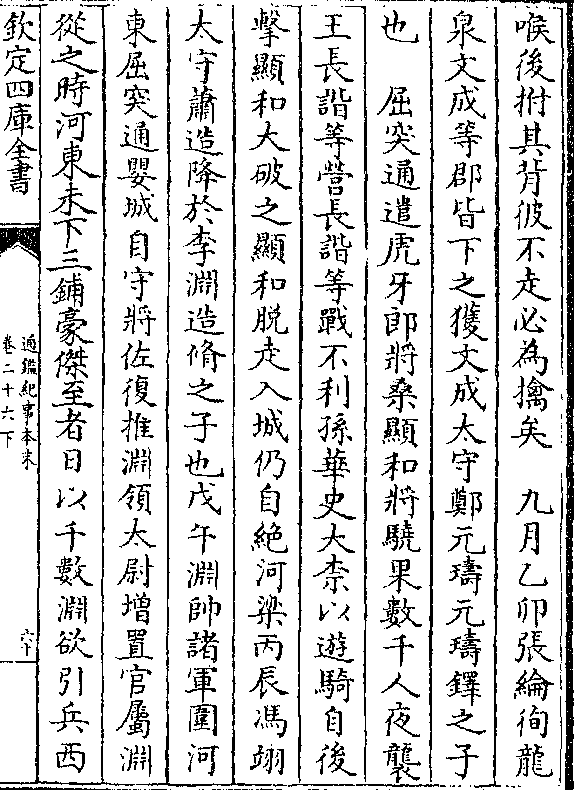 喉後拊其背彼不走必為擒矣　九月乙卯張綸徇龍
泉文成等郡皆下之獲文成太守鄭元璹元璹鐸之子
也　屈突通遣虎牙郎將桑顯和將驍果數千人夜襲
王長諧等營長諧等戰不利孫華史大柰以遊騎自後
擊顯和大破之顯和脱走入城仍自絶河梁丙辰馮翊
太守蕭造降於李淵造脩之子也戊午淵帥諸軍圍河
東屈突通嬰城自守將佐復推淵領太尉增置官屬淵
從之時河東未下三輔豪傑至者日以千數淵欲引兵西
欽定四庫全書
通鑑紀事本末
卷二十六下
六十